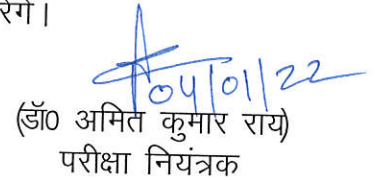 रेंगे।
04/01/22
(डॉ0 अमित कुमार राय)
परीक्षा नियंत्रक